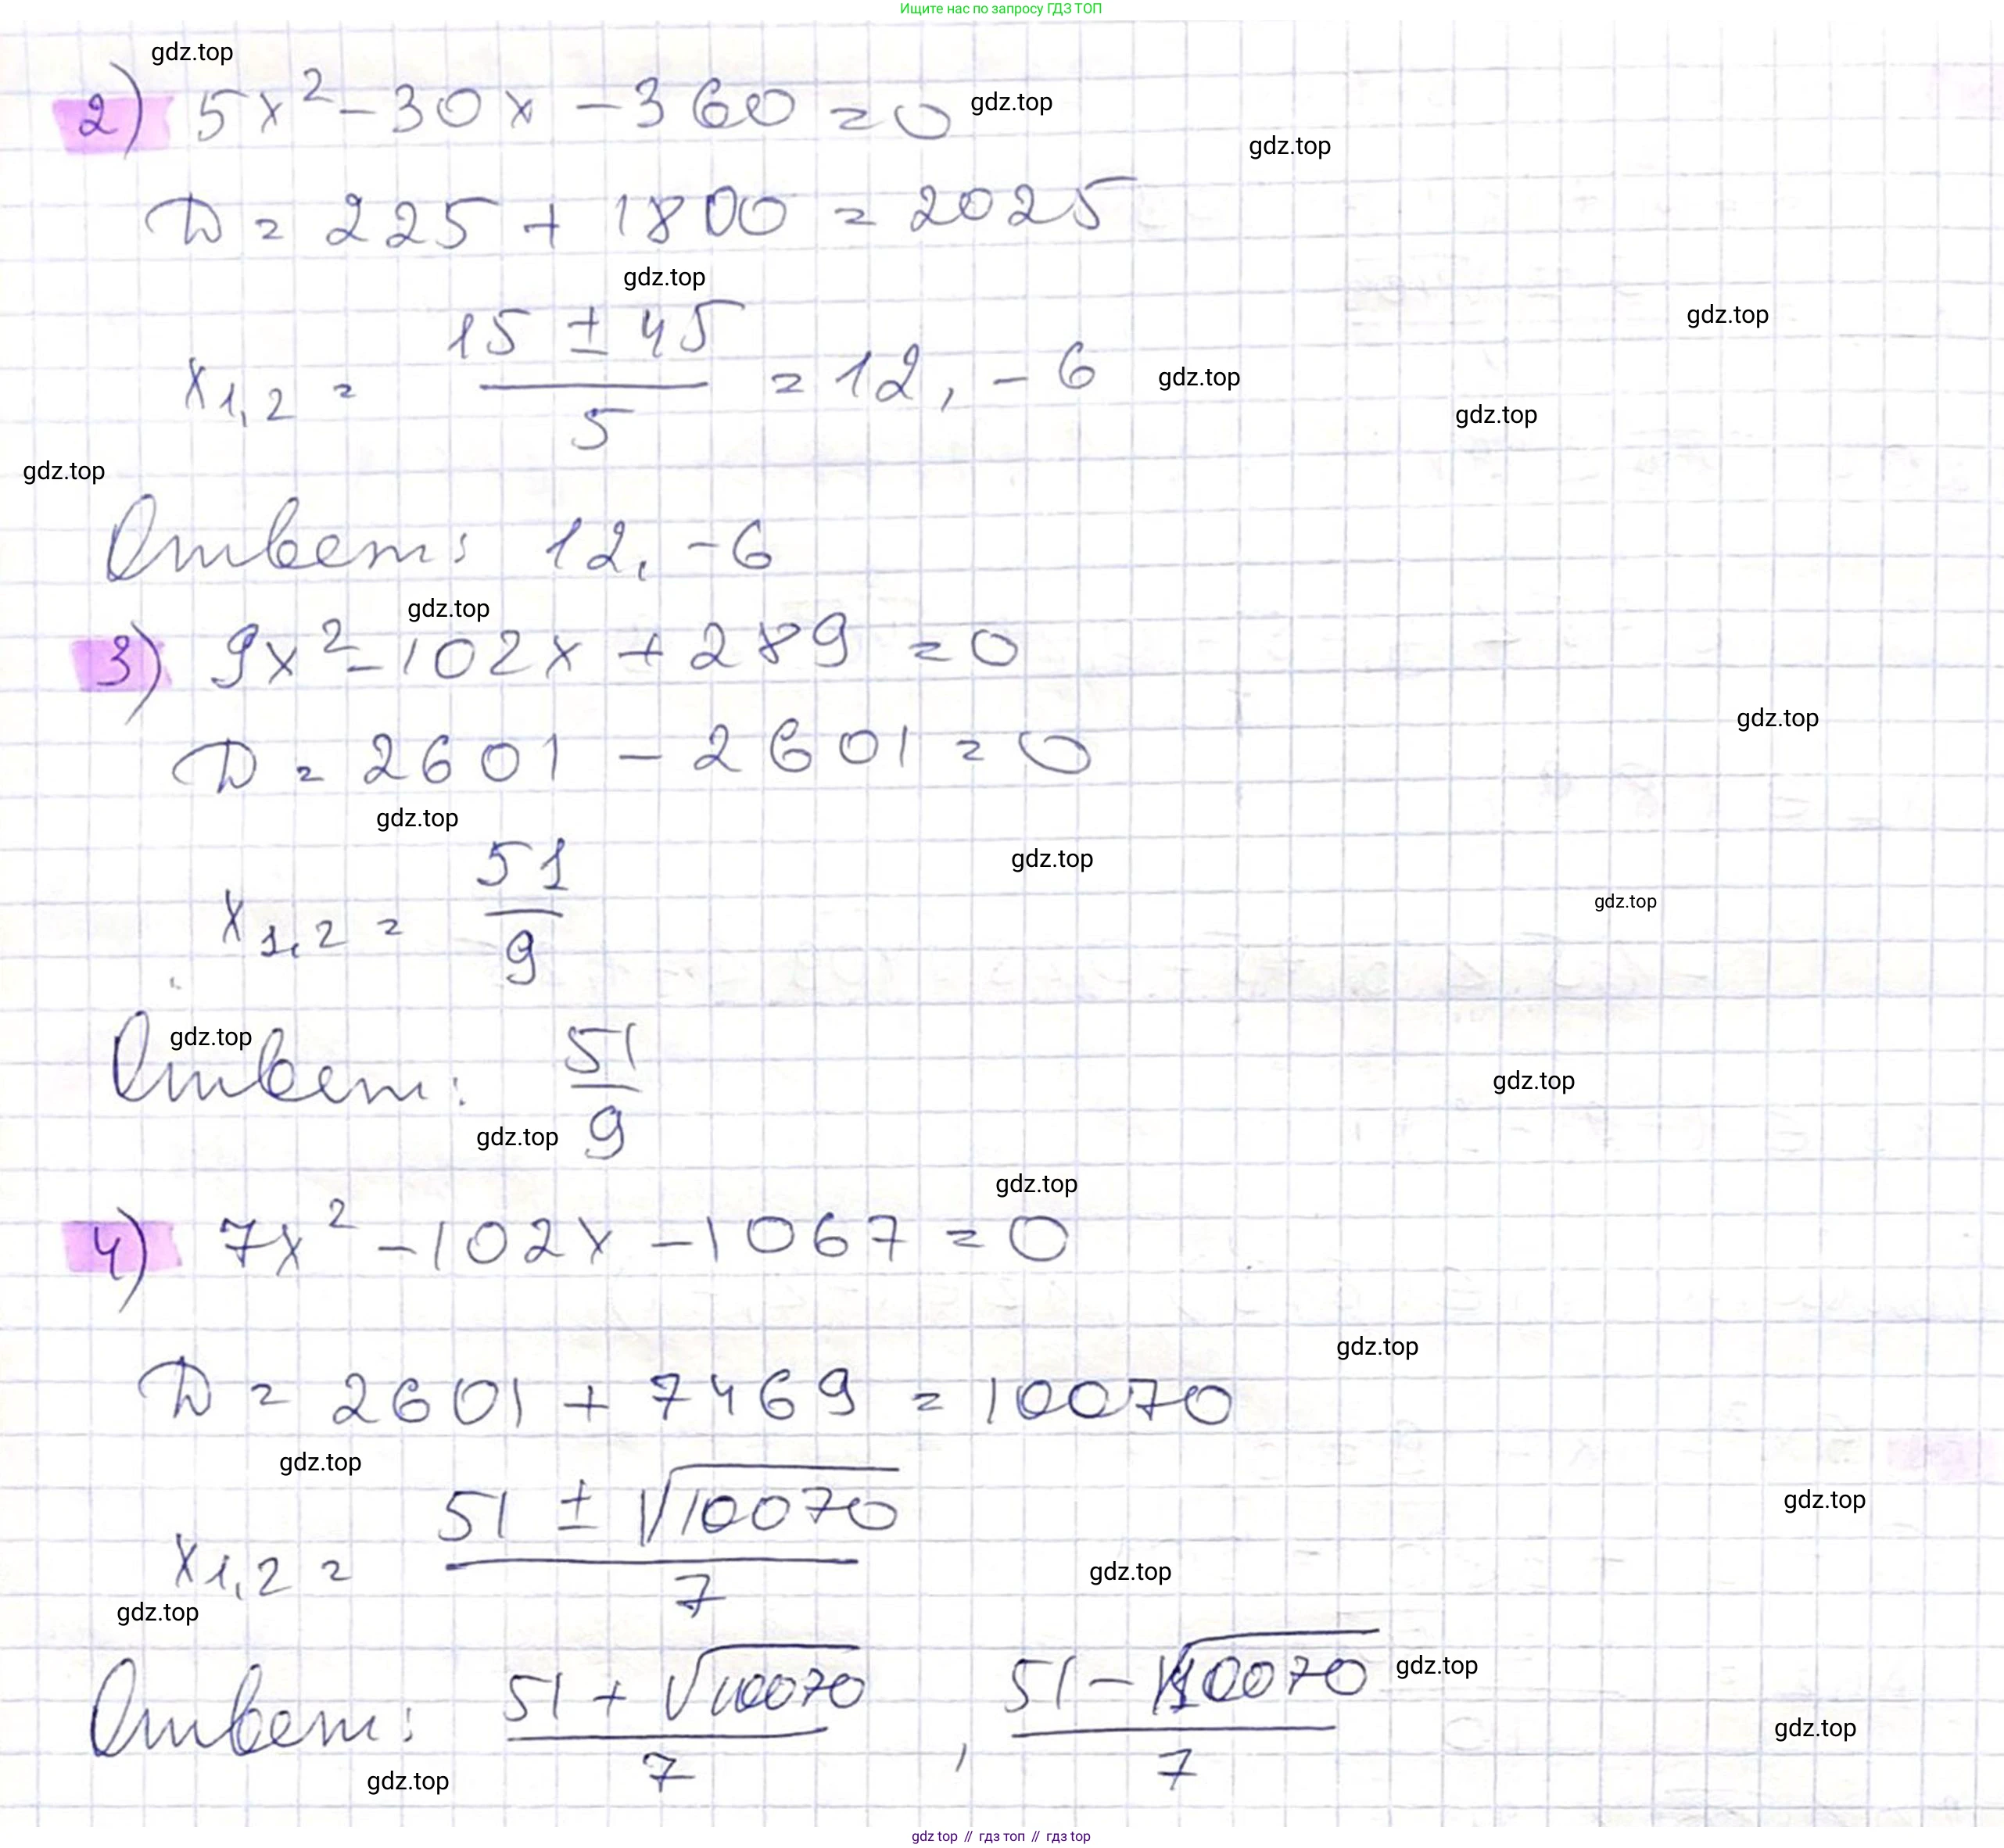 Ищите нас по запросу ГДЗ ТОП
gdz.top
2) 5x² - 30x - 360 = 0 gdz.top
gdz.top
D = 225 + 1800 = 2025
gdz.top
gdz.top
x₁,₂ = (15 ± 45)/5 = 12, -6 gdz.top
gdz.top
gdz.top
Ответ: 12, -6
gdz.top
3) 9x² - 102x + 289 = 0
gdz.top
D = 2601 - 2601 = 0
gdz.top
gdz.top
x₁,₂ = 51/9
gdz.top
gdz.top
Ответ: 51/9
gdz.top
gdz.top
gdz.top
4) 7x² - 102x - 1067 = 0
gdz.top
D = 2601 + 7469 = 10070
gdz.top
gdz.top
x₁,₂ = (51 ± √10070)/7
gdz.top
gdz.top
Ответ: (51 + √10070)/7 , (51 - √10070)/7 gdz.top
gdz.top
gdz.top
gdz top // гдз топ // гдз top